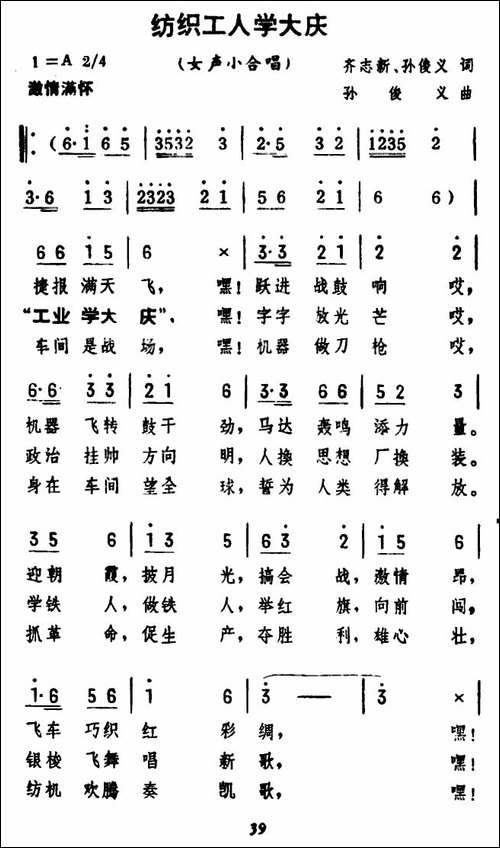 纺织工人学大庆
1=A 2/4 （女声小合唱） 齐志新、孙俊义 词
激情满怀 孙俊义 曲
‖: (6·1 6 5 | 3532 3 | 2·5 3 2 | 1235 2 |
3·6 1 3 | 2323 2 1 | 5 6 2 1 | 6 6) |
6 6 1 5 | 6 × | 3·3 2 1 | 2 2 |
捷报 满天 飞， 嘿！跃进 战鼓 响 哎，
“工业 学大 庆”， 嘿！字字 放光 芒 哎，
车间 是战 场， 嘿！机器 做刀 枪 哎，
6·6 3 3 | 2 1 6 | 3·3 6 6 | 5 2 3 |
机器 飞转 鼓干 劲，马达 轰鸣 添力 量。
政治 挂帅 方向 明，人换 思想 厂换 装。
身在 车间 望全 球，誓为 人类 得解 放。
3 5 6 | 1 3 5 | 6 3 2 | 1 5 6 |
迎朝 霞，披月 光，搞会 战，激情 昂，
学铁 人，做铁 人，举红 旗，向前 闯，
抓革 命，促生 产，夺胜 利，雄心 壮，
1·6 5 6 | 1 6 | 3 — | 3 × |
飞车 巧织 红 彩 绸， 嘿！
银梭 飞舞 唱 新 歌， 嘿！
纺机 欢腾 奏 凯 歌， 嘿！
39